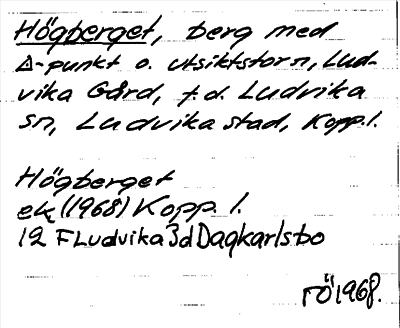 Högberget, berg med
Δ-punkt o. utsiktstorn, Lud-
vika Gård, f.d. Ludvika
sn, Ludvika stad, Kopp.l.
Högberget
ek (1968) Kopp. l.
12 F Ludvika 3d Dagkarlsbo
rö 1968.